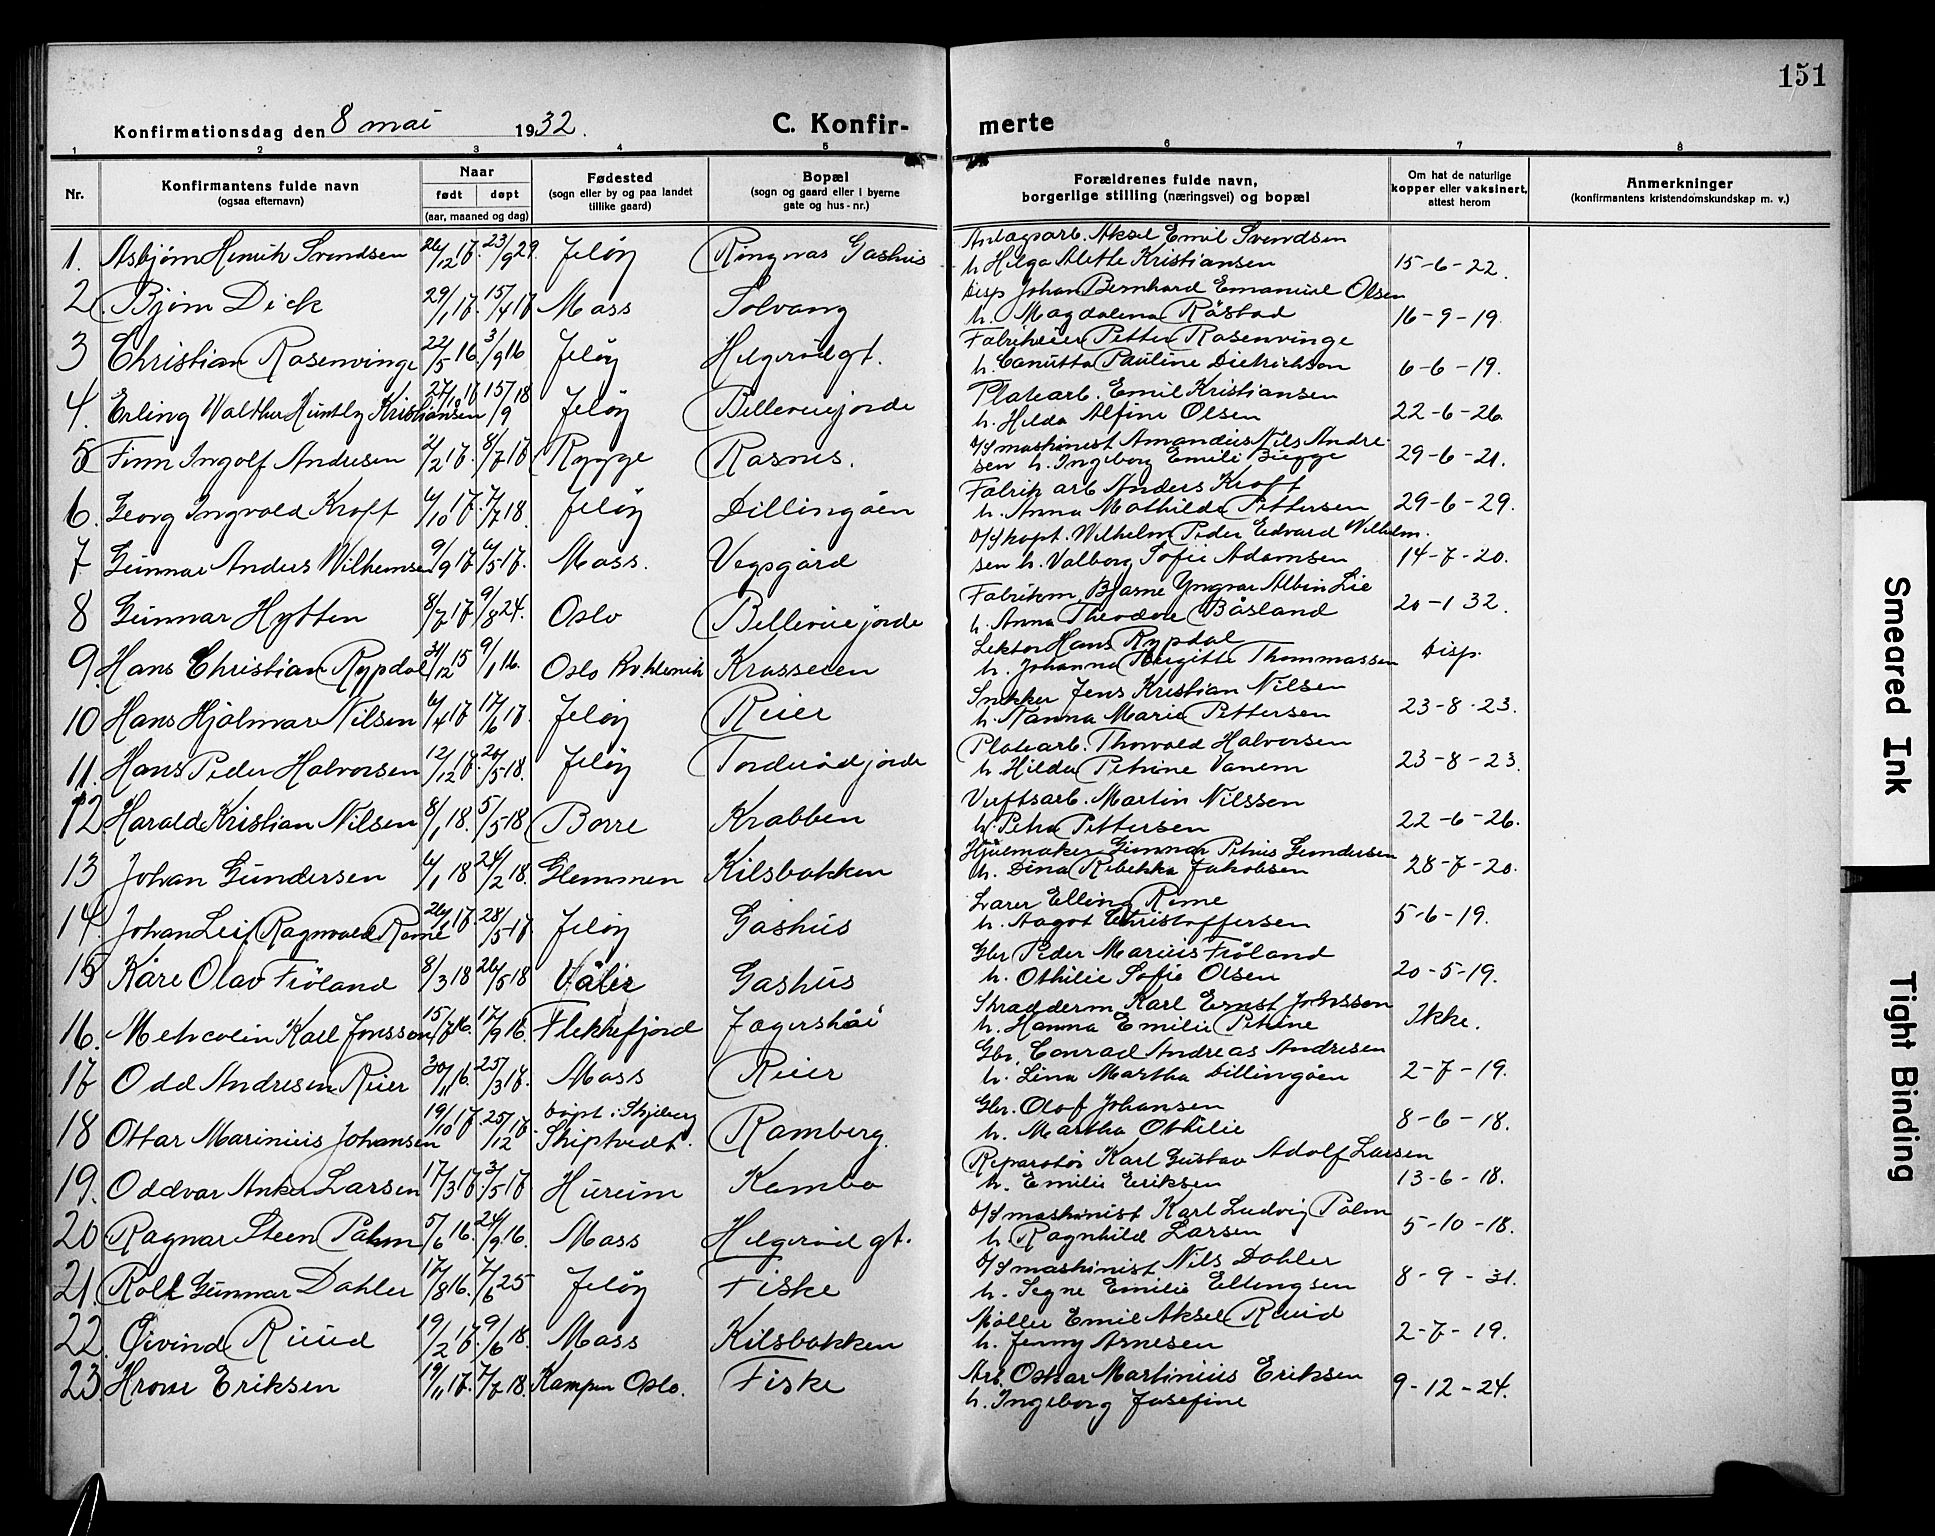 151
Konfirmationsdag den 8 mai 1932. C. Konfir- merte
1 2 3 4 5 6 7 8
Nr. Konfirmantens fulde navn (ogsaa efternavn) Naar født døpt (aar, maaned og dag) Fødested (sogn eller by og paa landet tillike gaard) Bopæl (sogn og gaard eller i byerne gate og hus-nr.) Forældrenes fulde navn, borgerlige stilling (næringsvei) og bopæl Om hat de naturlige kopper eller vaksinert, attest herom Anmerkninger (konfirmantens kristendomskundskap m. v.)
1. Asbjørn Henrik Svendsen 26/12 17. 23/9 29 Jeløy Ringnæs Gashus Anlægsarb. Aksel Emil Svendsen
h. Helga Alette Kristiansen 15-6-22.
2. Bjørn Dick 29/1 17. 15/4 17 Moss Solvang Disp Johan Bernhard Emanuel Olsen
h. Magdalena Råstad 16-9-19.
3 Christian Rosenvinge 22/5 16. 3/9 16 Jeløy Helgerødgt. Fabrikeier Petter Rosenvinge
h. Canutta Pauline Dietrichson 6-6-19.
4. Erling Walther Huntly Kristiansen 15/9 18 Jeløy Bellevuejorde Platearb. Emil Kristiansen
h. Hilda Alfine Olsen 22-6-26
5 Finn Ingolf Andresen 2/2 17. 8/7 17 Rygge Rosnes. D/S maskinist Amandus Nils Andre-
sen h. Ingeborg Emilie Bugge 29-6-21.
6. Georg Ingvald Kroft 6/10 17. 7/7 18. Jeløy Dillingøen Fabrik arb Anders Kroft
h. Anna Mathilde Pettersen 29-6-29.
7 Gunnar Anders Wilhemsen 9/9 17 6/5 17. Moss. Vegsgård D/S kapt. Wilhelm Peder Edvard Wilhelm.
sen h. Valborg Sofie Adamsen 14-7-20.
8 Gunnar Hytten 8/7 17 9/8 24. Oslo Bellevuejorde Fabrikm. Bjarne Yngvar Albin Lie
h. Anna Theodore Båsland 20-1 32.
9. Hans Christian Rypdal 31/12 15 9/1 16. Oslo Kv.klinik Krosseien Lektor Hans Rypdal
h. Johanna Birgitte Thommassen Disp.
10 Hans Hjalmar Nilsen 6/4 17 17/6 17. Jeløy Reier Snekker Jens Kristian Nilsen
h. Nanna Marie Pettersen 23-8-23.
11. Hans Peder Halvorsen 12/12 17. 20/5 18. Jeløy Torderødjorde Platearb. Thorvald Halvorsen
h. Hilda Petrine Vanem 23-8-23.
12 Harald Kristian Nilsen 8/1 18. 5/5 18 Borre Krabben Verftsarb. Martin Nilssen
h. Petra Pettersen 22-6-26.
13 Johan Gundersen 6/1 18 24/2 18. Glemmen Kilsbakken Hjulmaker Gunnar Petrus Gundersen
h. Dina Rebekka Jakobsen 28-7-20.
14. Johan Leif Ragnvald Rome 26/1 17 28/5 17. Jeløy Gashus Lærer Elling Rome
h. Aagot Christoffersen 5-6-19.
15 Kåre Olav Frøland 8/3 18 26/5 18 Våler Gashus Gbr Peder Marius Frøland
h. Othilie Sofie Olsen 20-5-19.
16. Karl Jonsson 15/7 16. 17/9 16. Flekkefjord Jægershøi Skradderm. Karl Ernst Johnsson
h. Hanna Emilie Petrine Ikke.
17 Odd Andresen Reier 30/11 16. 25/3 17. Moss Reier Gbr. Conrad Andreas Andresen
h. Lina Martha Dillingøen 2-7-19.
18 Ottar Marinius Johansen 19/10 17. 25/12 17 døpt i Skjeberg Skiptvedt. Ramberg. Gbr. Olof Johansen
h. Martha Othilie 8-6-18.
19. Oddvar Anker Larsen 17/3 17. 3/5 17 Hurum Kambo Reparatør Karl Gustav Adolf Larsen
h. Emilie Eriksen 13-6-18.
20 Ragnar Steen Palm 5/6 16. 24/9 16. Moss Helgerød gt. D/S maskinist Karl Ludvig Palm
h Ragnhild Larsen 5-10-18.
21. Rolf Gunnar Dahler 17/8 16. 7/6 25 Jeløy Fiske D/S maskinist Nils Dahler
h. Signe Emilie Ellingsen 8-9-31.
22. Øivind Ruud 19/2 17. 9/6 18. Moss Kilsbakken Møller Emil Aksel Ruud
h. Jenny Arnesen 2-7-19.
23 Eriksen 19/11 17. 7/7 18. Kampen Oslo. Fiske Arb. Oskar Martinius Eriksen
h. Ingeborg Josefine 9-12-24.
Smeared Ink
Tight Binding